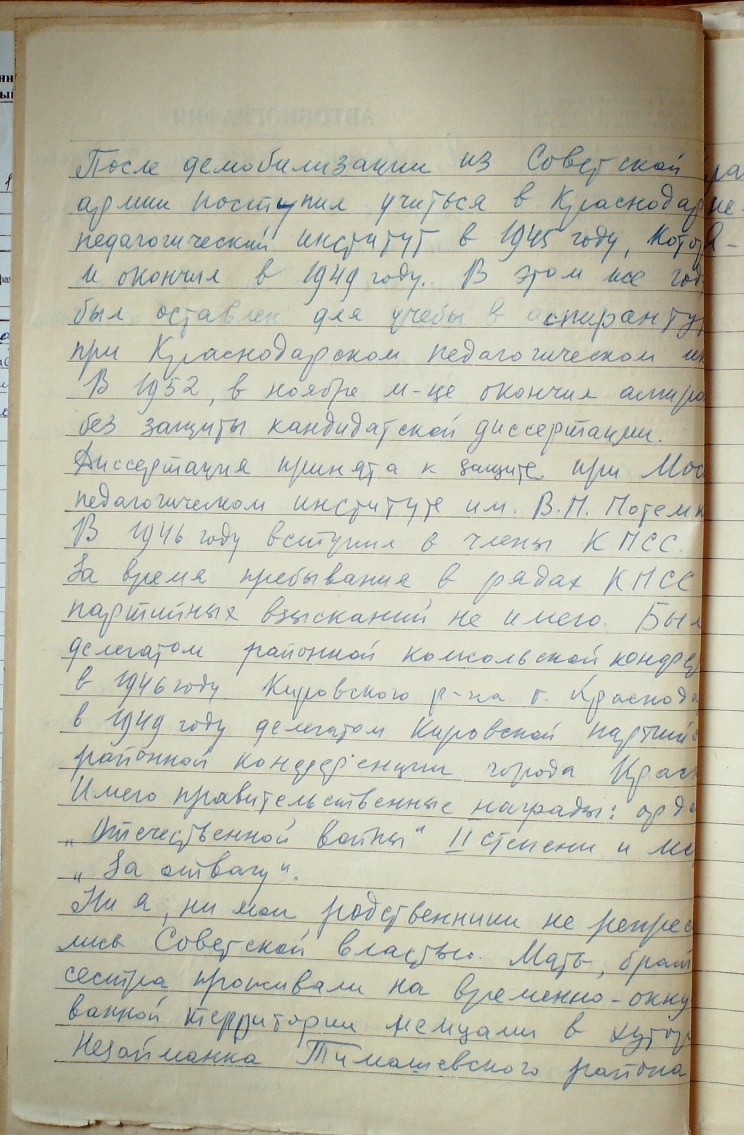 После демобилизации из Советской
армии поступил учиться в Краснодар
педагогический институт в 1945 году, котор
и окончил в 1949 году. В этом же год
был оставлен для учебы в аспирантур
при Краснодарском педагогическом ин
В 1952, в ноябре м-це окончил аспира
без защиты кандидатской диссертации.
Диссертация принята к защите при Мос
педагогическом институте им. В.П. Потемк
В 1946 году вступил в члены КПСС.
За время пребывания в рядах КПСС
партийных взысканий не имею. Был
делегатом районной комсольской конфер
в 1946 году Кировского р-на г. Краснода
в 1949 году делегатом Кировской партий
районной конференции города Крас
Имею правительственные награды: орде
„Отечественной войны" II степени и ме
„За отвагу".
Ни я, ни мои родственники не репрес
лись Советской властью. Мать, брат
сестра проживали на временно-окку
ванной территории немцами в хутор
Незайманка Тимашевского района